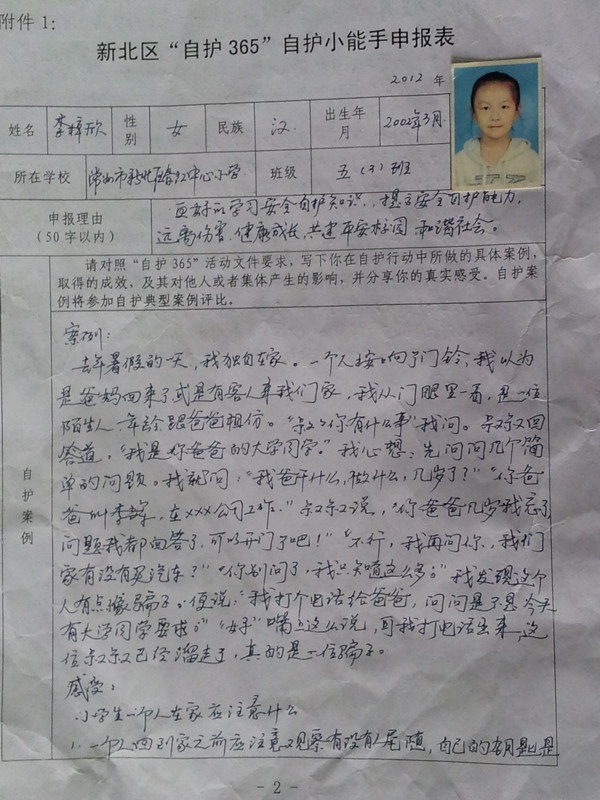 附件1：
新北区“自护365”自护小能手申报表
2012 年
姓名 李梓欣 性别 女 民族 汉 出生年月 2002年3月
所在学校 常州市新北区 中心小学 班级 五（3）班
申报理由（50字以内） 更好的学习安全自护知识，提高安全自护能力，
远离伤害、健康成长，共建平安校园 和谐社会。
请对照“自护365”活动文件要求，写下你在自护行动中所做的具体案例，
取得的成效，及其对他人或者集体产生的影响，并分享你的真实感受。自护案
例将参加自护典型案例评比。
自护案例
案例：
去年暑假的一天，我独自在家。一个人按响了门铃，我以为
是爸妈回来了或是有客人来我们家，我从门眼里一看，是一位
陌生人，年龄跟爸爸相仿。“叔叔你有什么事”我问。叔叔回
答道，“我是你爸爸的大学同学。”我心想：先问问几个简
单的问题。我就问：“我爸干什么，做什么，几岁了？”“你爸
爸叫李 ，在xxx公司工作。”叔叔说，“你爸爸几岁我忘了，
问题我都回答了，可以开门了吧！”“不行，我再问你，我们
家有没有买汽车？”“你别问了，我只知道这么多。”我发现这个
人有点像骗子。便说：“我打个电话给爸爸，问问是不是今天
有大学同学要来。”“好”嘴上这么说，可我打电话出来，这
位叔叔已经溜走了，真的是一位骗子。
感受：
小学生一个人在家应注意什么
1. 一个人回到家之前应注意观察有没有人尾随，自己的钥匙是
- 2 -